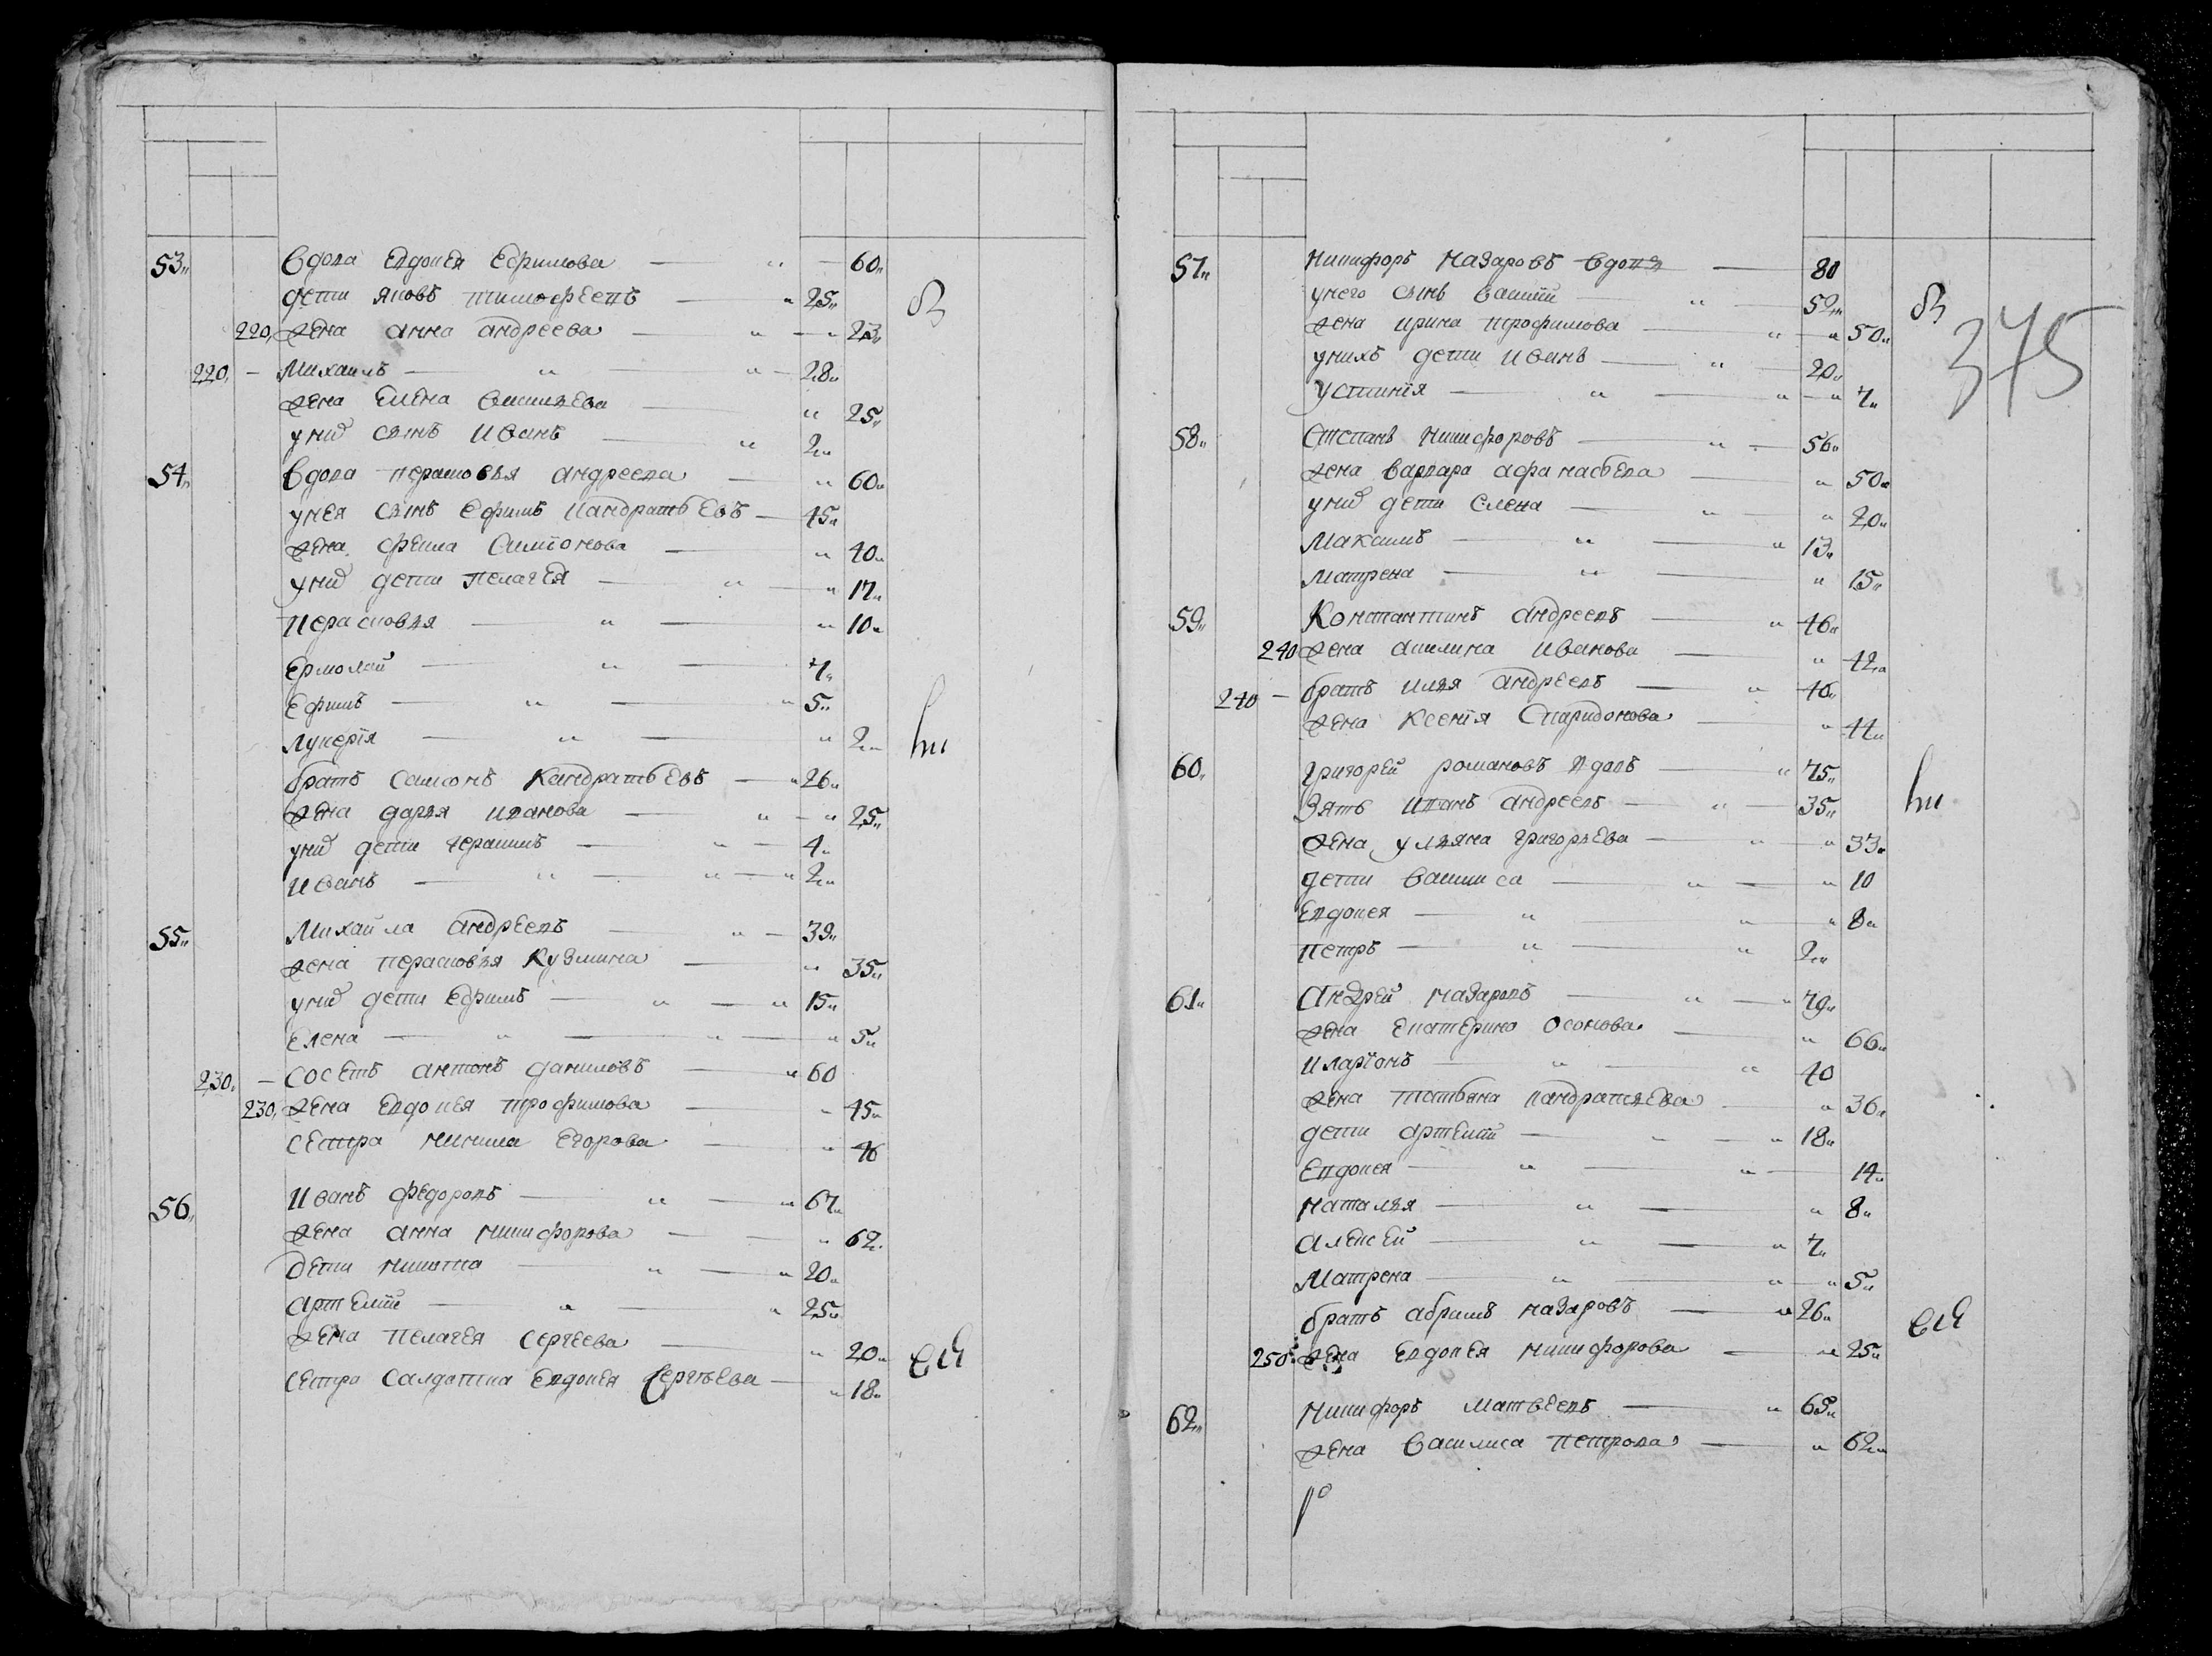 53 Вдова Евдокея Ефимова 60
дети Яковъ Тимофеевъ 25
220 жена Анна Андреева 23
220 Михаилъ 28
жена Елена Васильева 25
у них сынъ Иванъ 2
54 Вдова Перасковья Андреева 60
у нея сынъ Ефимъ Кандратьевъ 45
жена Фекла Симионова 40
у них дети Пелагея 17
Перасковья 10
Ермолай 7
Ефимъ 5
Лукерiя 2
братъ Самсонъ Кандратьевъ 26
жена Дарья Иванова 25
у них дети Герасимъ 4
Иванъ 2
55 Михайла Андреевъ 39
жена Перасковья Кузмина 35
у них дети Ефимъ 15
Елена 5
230 Сосетъ Антонъ Даниловъ 60
230 жена Евдокея Трофимова 45
сестра Егорова 46
56 Иванъ Федоровъ 67
жена Анна Никифорова 62
Дети Никита 20
Артемiй 25
жена Пелагея Сергеева 20
сестра салдатка Евдокея Сергеева 18
въ
ни
ей
375
57 Никифоръ Назаровъ вдовъ 80
у него сынъ Василiй 52
жена Ирина Трофимова 50
у нихъ дети Иванъ 20
Устинiя 7
58 Степанъ Никифоровъ 56
жена Варвара Афанасьева 50
у них дети Елена 20
Максимъ 13
Матрена 15
59 Константинъ Андреевъ 46
240 жена Акилина Иванова 42
240 братъ Илья Андреевъ 46
жена Ксенiя Спиридонова 44
60 Григорей Романовъ вдовъ 75
Зять Иванъ Андреевъ 35
жена Ульяна Григорьева 33
дети Василиса 10
Евдокея 8
Петръ 2
61 Андрей Назаровъ 79
жена Екатерина Осонова 66
Иларiонъ 40
жена Татьяна Кандратьева 36
дети Артемiй 18
Евдокея 14
Наталья 8
Алексей 7
Матрена 5
братъ Абрамъ Назаровъ 26
250 жена Евдокея Никифорова 25
62 Никифоръ Матвеевъ 65
жена Василиса Петрова 62
въ
ни
ей